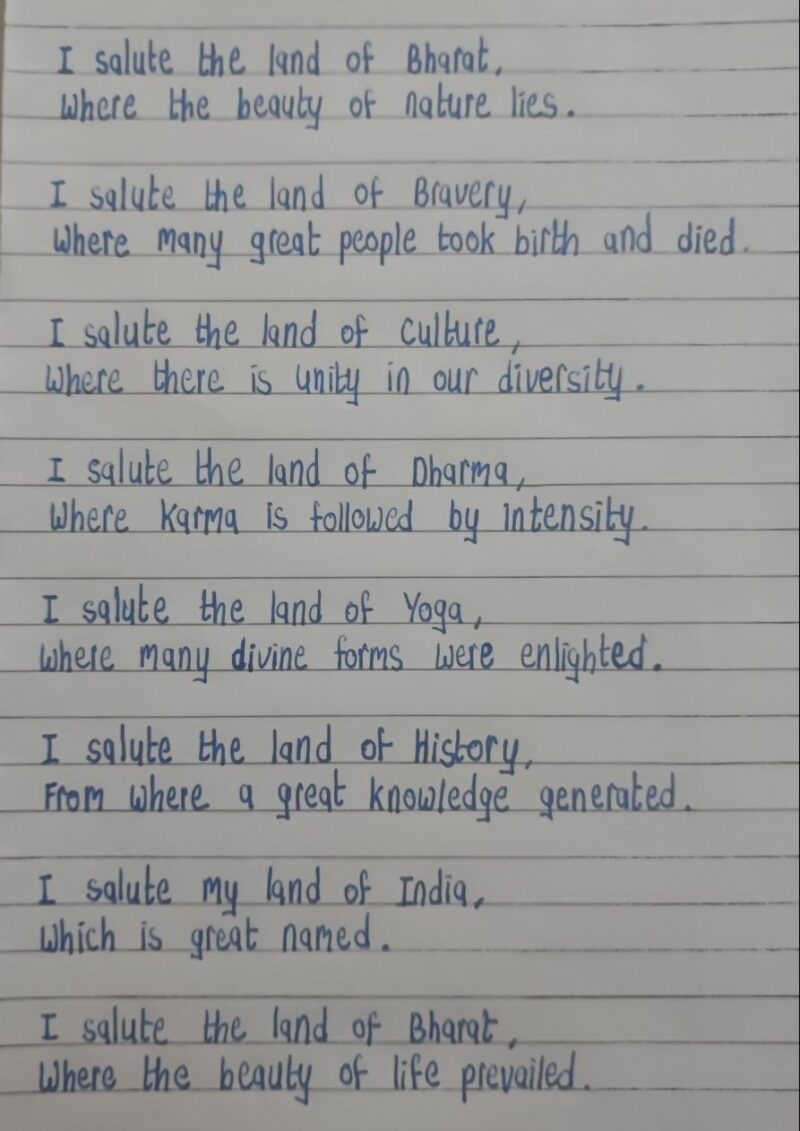 I salute the land of Bharat,
Where the beauty of nature lies.
I salute the land of Bravery,
Where many great people took birth and died.
I salute the land of Culture,
Where there is unity in our diversity.
I salute the land of Dharma,
Where Karma is followed by intensity.
I salute the land of Yoga,
Where many divine forms were enlighted.
I salute the land of History,
From where a great knowledge generated.
I salute my land of India,
Which is great named.
I salute the land of Bharat,
Where the beauty of life prevailed.